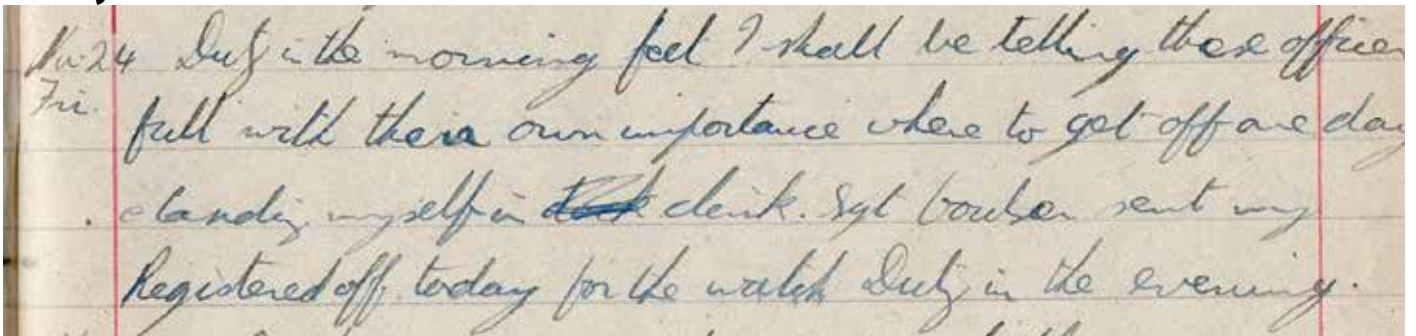 Nov 24 Duty in the morning feel I shall be telling these officers
Fri. full with their own importance where to get off one day
. & landing myself in clink. Sgt sent my
Registered off today for the watch Duty in the evening.